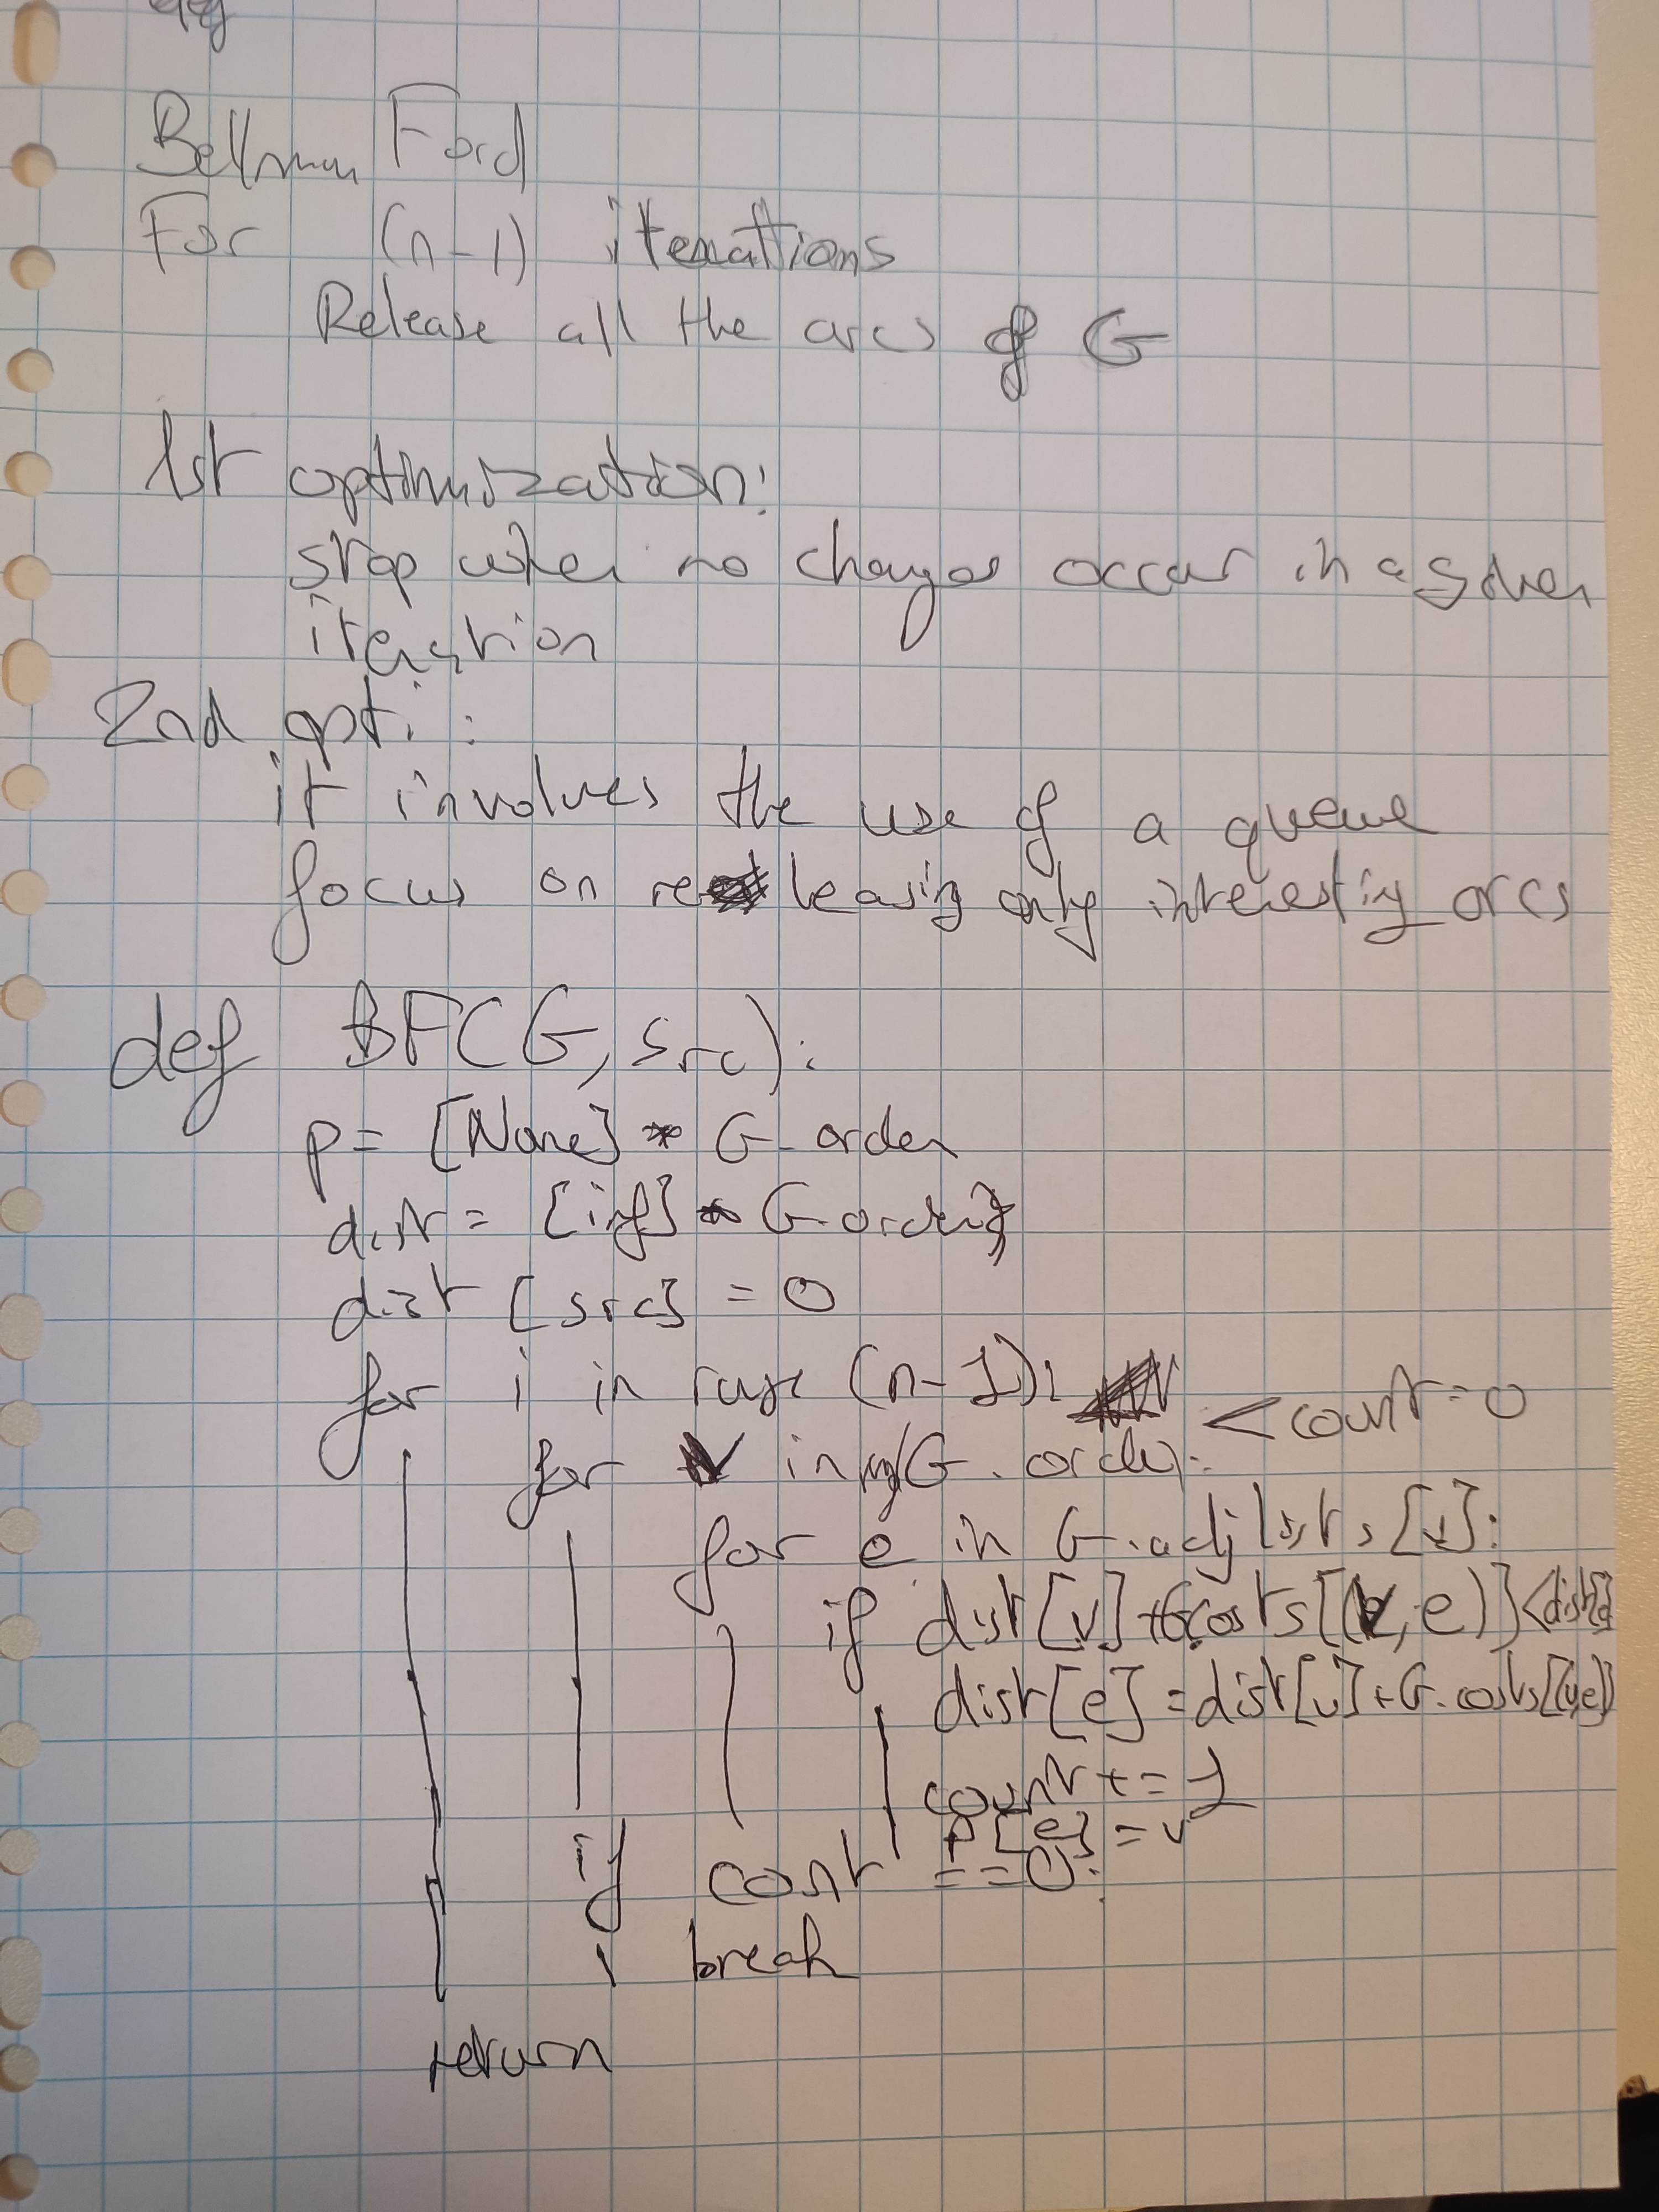 Bellman Ford
For (n-1) iterattions
Release all the arcs of G
1st optimization:
stop when no changes occur in a given
iteration
2nd opti:
it involves the use of a queue
focus on releasing only interesting arcs
def BF(G, src):
p = [None] * G.order
dist = [inf] * G.order
dist [src] = 0
for i in range (n-1): < count = 0
for v in G.order):
for e in G.adjlists [v]:
if dist[v] + G.costs[(v, e)] < dist[e]
dist[e] = dist[v] + G.costs[(v,e)]
count += 1
p[e] = v
if cont == 0:
break
return